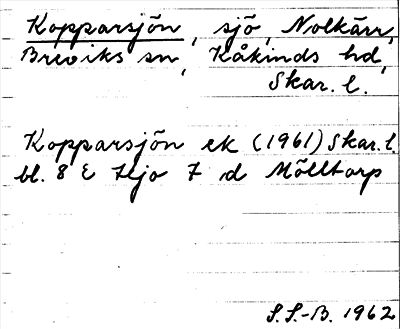 Kopparsjön, sjö, Nolkärr,
Breviks sn, Kåkinds hd,
Skar. l.
Kopparsjön ek (1961) Skar. l.
bl. 8 E Hjo 7 d Mölltorp
S.S-B. 1962